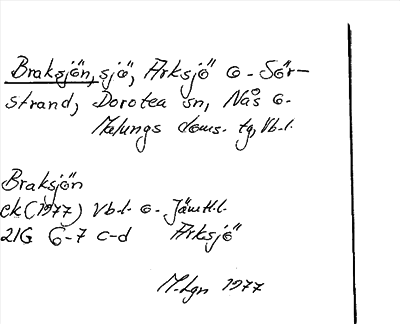 Braksjön, sjö, Arksjö o. Sör-
strand, Dorotea sn, Nås o.
Malungs doms. tg, Vb.l.
Braksjön
ek (1977) Vb.l. o. Jämtl.l.
21G 6-7 c-d Arksjö
M.Lgn 1977